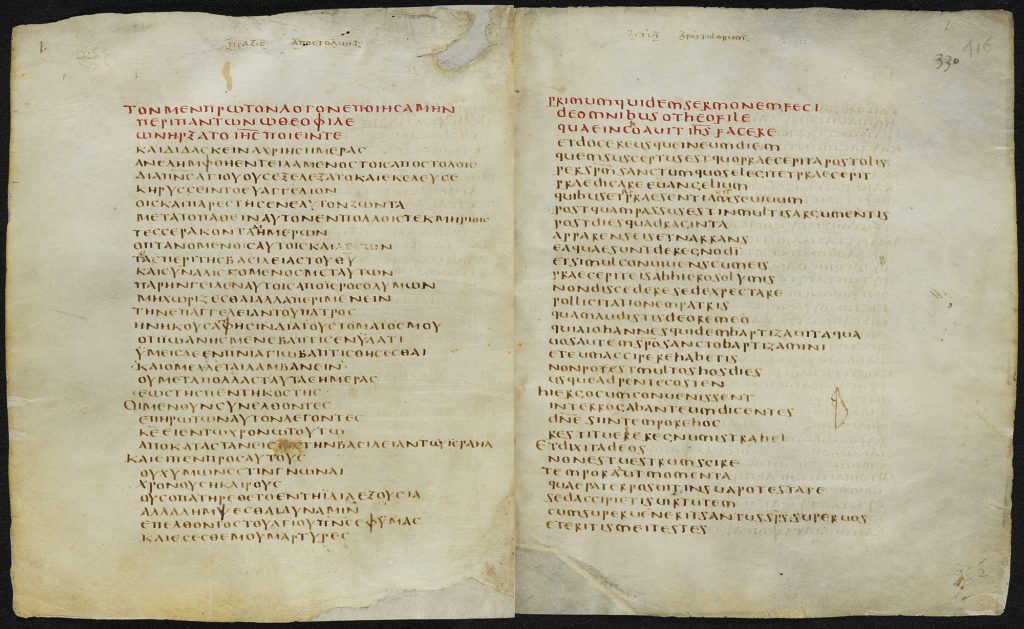 1.
ΠΡΑΞΙϹ ΑΠΟϹΤΟΛΩΝ
ΤΟΝΜΕΝΠΡΩΤΟΝΛΟΓΟΝΕΠΟΙΗϹΑΜΗΝ
ΠΕΡΙΠΑΝΤΩΝΩΘΕΟΦΙΛΕ
ΩΝΗΡΞΑΤΟΙΗϹΠΟΙΕΙΝΤΕ
ΚΑΙΔΙΔΑϹΚΕΙΝΑΧΡΙΗϹΗΜΕΡΑϹ
ΑΝΕΛΗΜΦΘΗΕΝΤΕΙΛΑΜΕΝΟϹΤΟΙϹΑΠΟϹΤΟΛΟΙϹ
ΔΙΑΠΝϹΑΓΙΟΥΟΥϹΕΞΕΛΕΞΑΤΟΚΑΙΕΚΕΛΕΥϹΕ
ΚΗΡΥϹϹΕΙΝΤΟΕΥΑΓΓΕΛΙΟΝ
ΟΙϹΚΑΙΠΑΡΕϹΤΗϹΕΝΕΑΥΤΟΝΖΩΝΤΑ
ΜΕΤΑΤΟΠΑΘΕΙΝΑΥΤΟΝΕΝΠΟΛΛΟΙϹΤΕΚΜΗΡΙΟΙϹ
ΤΕϹϹΕΡΑΚΟΝΤΑΗΜΕΡΩΝ
ΟΠΤΑΝΟΜΕΝΟΙϹΑΥΤΟΙϹΚΑΙ
ΤΑϹΠΕΡΙΤΗϹΒΑϹΙΛΕΙΑϹΤΟΥΘΥ
ΚΑΙϹΥΝΑΛΙϹΚΟΜΕΝΟϹΜΕΤΑΥΤΩΝ
ΠΑΡΗΓΓΕΙΛΕΝΑΥΤΟΙϹΑΠΟΙΕΡΟϹΟΛΥΜΩΝ
ΜΗΧΩΡΙΖΕϹΘΑΙΑΛΛΑΠΕΡΙΜΕΝΕΙΝ
ΤΗΝΕΠΑΓΓΕΛΕΙΑΝΤΟΥΠΑΤΡΟϹ
ΗΝΗΚΟΥϹΑΦΗϹΙΝΔΙΑΤΟΥϹΤΟΜΑΤΟϹΜΟΥ
ΟΤΙΙΩΑΝΗϹΜΕΝΕΒΑΠΤΙϹΕΝΥΔΑΤΙ
ΫΜΕΙϹΔΕΕΝΠΝΙΑΓΙΩΒΑΠΤΙϹΘΗϹΕϹΘΑΙ
ΚΑΙΟΜΕΛΛΕΤΑΙΛΑΜΒΑΝΕΙΝ
ΟΥΜΕΤΑΠΟΛΛΑϹΤΑΥΤΑϹΗΜΕΡΑϹ
ΕΩϹΤΗϹΠΕΝΤΗΚΟϹΤΗϹ
ΟΙΜΕΝΟΥΝϹΥΝΕΛΘΟΝΤΕϹ
ΕΠΗΡΩΤΩΝΑΥΤΟΝΛΕΓΟΝΤΕϹ
ΚΕΕΙΕΝΤΩΧΡΟΝΩΤΟΥΤΩ
ΑΠΟΚΑΤΑϹΤΑΝΕΙϹΤΗΝΒΑϹΙΛΕΙΑΝΤΩΙϹΡΑΗΛ
ΚΑΙΕΙΠΕΝΠΡΟϹΑΥΤΟΥϹ
ΟΥΧΥΜΩΝΕϹΤΙΝΓΝΩΝΑΙ
ΧΡΟΝΟΥϹΗΚΑΙΡΟΥϹ
ΟΥϹΟΠΑΤΗΡΕΘΕΤΟΕΝΤΗΙΔΙΑΕΞΟΥϹΙΑ
ΑΛΛΑΛΗΜΨΕϹΘΑΙΔΥΝΑΜΙΝ
ΕΠΕΛΘΟΝΤΟϹΤΟΥΑΓΙΟΥΠΝϹΕΦΥΜΑϹ
ΚΑΙΕϹΕϹΘΕΜΟΥΜΑΡΤΥΡΕϹ
1.
ACTUS APOSTOLORUM
416
330
PRIMUMQUIDEMSERMONEMFECI
DEOMNIBUSOTHEOFILE
QUAEINCOAUITIHSFACERE
ETDOCEREUSQUEINEUMDIEM
QUEMSUSCEPTUSESTQUOPRAECEPITAPOSTOLIS
PERSPMSANCTUMQUOSELEGITETPRAECEPIT
PRAEDICAREEUANGELIUM
QUIBUSETPRAESENTIAMSEUIUUM
POSTQUAMPASSUSESTINMULTISARGUMENTIS
POSTDIESQUADRAGINTA
APPARENSEISETNARRANS
EAQUAESUNTDEREGNODI
ETSIMULCONUIUENSCUMEIS
PRAECEPITEISABHIEROSOLYMIS
NONDISCEDERESEDEXPECTARE
POLLICITATIONEMPATRIS
QUAMAUDISTISDEOREMEO
QUIAIOHANNESQUIDEMBAPTIZAUITAQUA
UOSAUTEMSPOSANCTOBAPTIZAMINI
ETEUMACCIPEREHABETIS
NONPOSTMULTOSHOSDIES
USQUEADPENTECOSTEN
HIERGOCUMCONUENISSENT
INTERROGABANTEUMDICENTES
DNESIINTEMPOREHOC
RESTITUEREREGNUMISTRAHEL
ETDIXITADEOS
NONESTUESTRUMSCIRE
TEMPORAUTMOMENTA
QUAEPATERPOSUITINSUAPOTESTATE
SEDACCIPIETISUIRTUTEM
CUMSUPERUENERITSANTUSSPSSUPERUOS
ETERITISMEITESTES